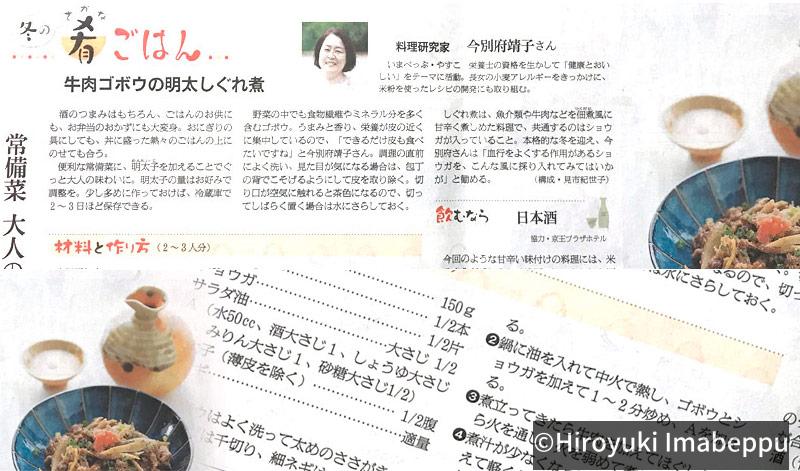 冬の
さかな
肴
ごはん…
牛肉ゴボウの明太しぐれ煮
料理研究家　今別府靖子さん
いまべっぷ・やすこ　栄養士の資格を生かして「健康とおい
しい」をテーマに活動。長女の小麦アレルギーをきっかけに、
米粉を使ったレシピの開発にも取り組む。
常備菜 大人の
酒のつまみはもちろん、ごはんのお供に
も、お弁当のおかずにも大変身。おにぎりの
具にしても、丼に盛った熱々のごはんの上に
のせても合う。
便利な常備菜に、明太子を加えることでぐ
っと大人の味わいに。明太子の量はお好みで
調整を。少し多めに作っておけば、冷蔵庫で
２〜３日ほど保存できる。
野菜の中でも食物繊維やミネラル分を多く
含むゴボウ。うまみと香り、栄養が皮の近く
に集中しているので、「できるだけ皮も食べ
たいですね」と今別府靖子さん。調理の直前
によく洗い、見た目が気になる場合は、包丁
の背でこそげるようにして皮を取り除く。切
り口が空気に触れると茶色になるので、切っ
てしばらく置く場合は水にさらしておく。
しぐれ煮は、魚介類や牛肉などを佃煮風に
甘辛く煮しめた料理で、共通するのはショウ
ガが入っていること。本格的な冬を迎え、今
別府さんは「血行をよくする作用があるショ
ウガを、こんな風に採り入れてみてはいか
が」と勧める。
（構成・見市紀世子）
飲むなら　日本酒
協力・京王プラザホテル
今回のような甘辛い味付けの料理には、米
材料と作り方（２〜３人分）
なるので、切っ
は水にさらしておく。
150ｇ
1/2本
ョウガ
1/2片
サラダ油
大さじ 1/2
（水50cc、酒大さじ１、しょうゆ大さじ
みりん大さじ１、砂糖大さじ1/2）
子（薄皮を除く）
1/2腹
適量
はよく洗って太めのささが
は千切り、細ネギ
る。
❷鍋に油を入れて中火で熱し、ゴボウとシ
ョウガを加えて１〜２分炒め、Ａを
る。
❸煮立ってきたら牛肉を
ら火を通
❹煮汁が少なくな
えて軽く
©Hiroyuki Imabeppu